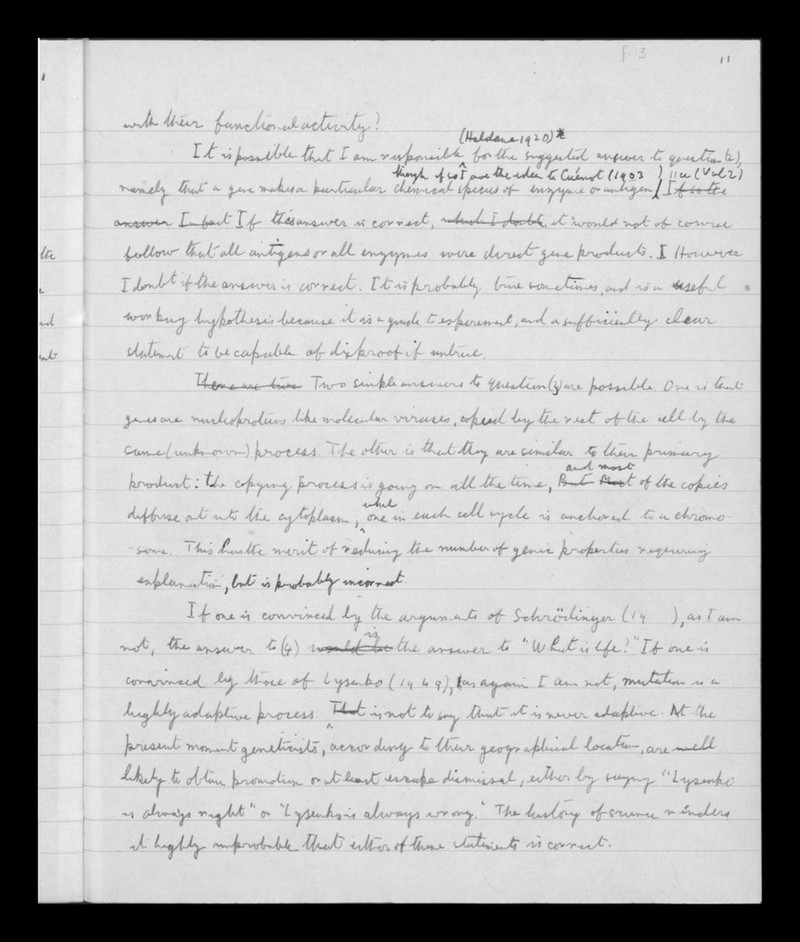 f. 13
11
with their functional activity?
(Haldane 1920)
It is possible that I am responsible for the suggested answer to question (2),
though if so I owe the idea to Cuénot (1903
namely that a gene makes a particular chemical species of enzyme or antigen. If so the
answer In fact If this answer is correct, which I doubt, it would not of course
follow that all antigens or all enzymes were direct gene products. However
I doubt if the answer is correct. It is probably true sometimes, and is a useful
working hypothesis because it is a guide to experiment, and a sufficiently clear
statement to be capable of disproof if untrue.
There are two Two simple answers to question (3) are possible. One is that
genes are nucleoproteins like molecular viruses, copied by the rest of the cell by the
same (unknown) process. The other is that they are similar to their primary
and most
product: the copying process is going on all the time, But Most of the copies
while
diffuse out into the cytoplasm, one in each cell cycle is anchored to a chromo-
-some. This has the merit of reducing the number of genic properties requiring
explanation, but is probably incorrect.
If one is convinced by the arguments of Schrödinger (19 ), as I am
is
not, the answer to (4) would be the answer to "What is life?" If one is
convinced by those of Lysenko (1949), as again I am not, mutation is a
highly adaptive process. That is not to say that it is never adaptive. At the
present moment geneticists, according to their geographical location, are well
likely to obtain promotion or at least escape dismissal, either by saying "Lysenko
is always right" or "Lysenko is always wrong." The history of science renders
it highly improbable that either of these statements is correct.